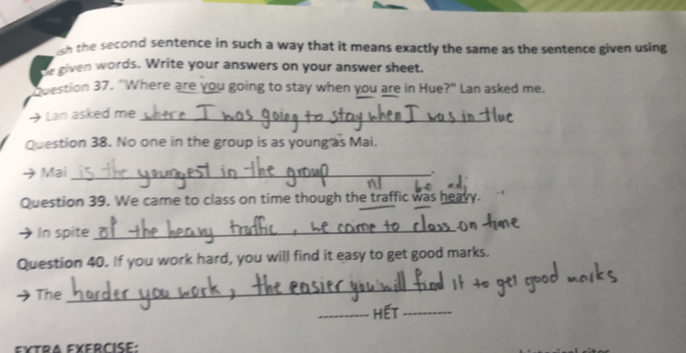 ish the second sentence in such a way that it means exactly the same as the sentence given using
he given words. Write your answers on your answer sheet.
Question 37. "Where are you going to stay when you are in Hue?" Lan asked me.
→ Lan asked me where I was going to stay when I was in Hue
Question 38. No one in the group is as young as Mai.
→ Mai is the youngest in the group.
be adj
Question 39. We came to class on time though the traffic was heavy.
→ In spite of the heavy traffic, we come to class on time
Question 40. If you work hard, you will find it easy to get good marks.
→ The harder you work, the easier you will find it to get good marks
---------- HẾT ----------
EXTRA EXERCISE: